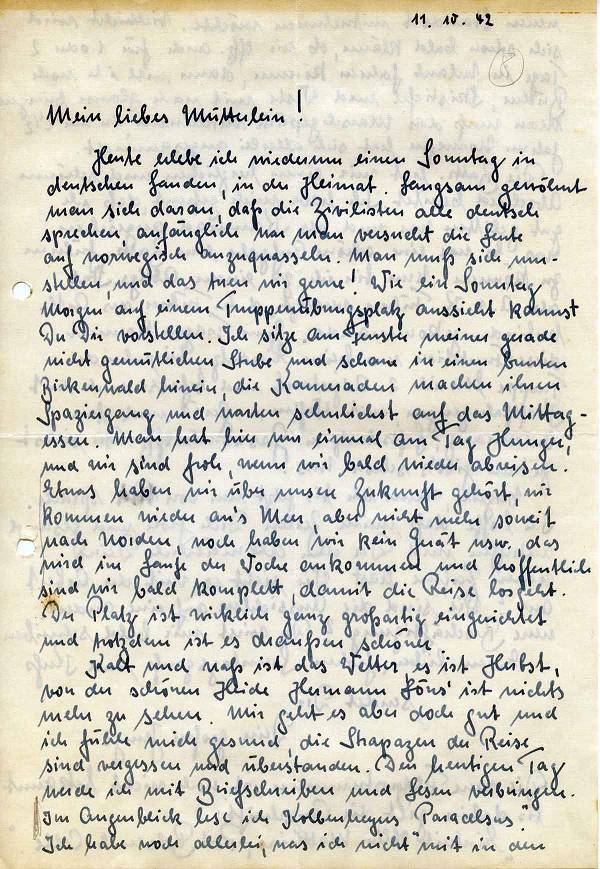 11. 10. 42
8
Mein liebes Mütterlein!
Heute erlebe ich wiederum einen Sonntag in
deutschen Landen, in der Heimat. Langsam gewöhnt
man sich daran, daß die Zivilisten alle deutsch
sprechen, anfänglich war man versucht die Leute
auf norwegisch anzuquasseln. Man muß sich um-
stellen, und das tuen wir gerne! Wie ein Sonntag
Morgen auf einem Truppenübungsplatz aussieht kannst
Du Dir vorstellen. Ich sitze am Fenster meiner gerade
nicht gemütlichen Stube und schaue in einen bunten
Birkenwald hinein, die Kameraden machen ihren
Spaziergang und warten sehnlichst auf das Mittag-
essen. Man hat hier nur einmal am Tag Hunger,
und wir sind froh, wenn wir bald wieder abreisen.
Etwas haben wir über unsere Zukunft gehört, wir
kommen wieder an's Meer, aber nicht mehr soweit
nach Norden, noch haben wir kein Gerät usw., das
wird im Laufe der Woche ankommen und hoffentlich
sind wir bald komplett, damit die Reise losgeht.
Der Platz ist wirklich ganz großartig eingerichtet
und trotzdem ist es draußen schöner.
Kalt und naß ist das Wetter, es ist Herbst,
von der schönen Heide Hermann Löns' ist nichts
mehr zu sehen. Mir geht es aber doch gut und
ich fühle mich gesund, die Strapazen der Reise
sind vergessen und überstanden. Den heutigen Tag
werde ich mit Briefschreiben und Lesen verbringen.
Im Augenblick lese ich Kolbenheyers „Paracelsus".
Ich habe noch allerlei, was ich nicht mit in den